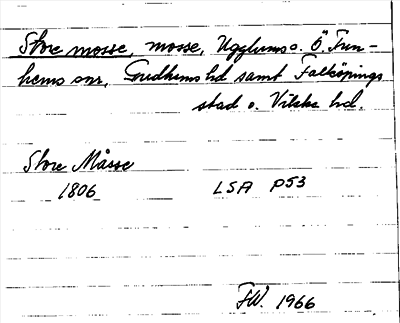 Store mosse, mosse, Ugglums o. Ö. Tun-
hems snr, Gudhems hd samt Falköpings
stad o. Vilske hd.
Store Måsse
1806 LSA P53
FW. 1966